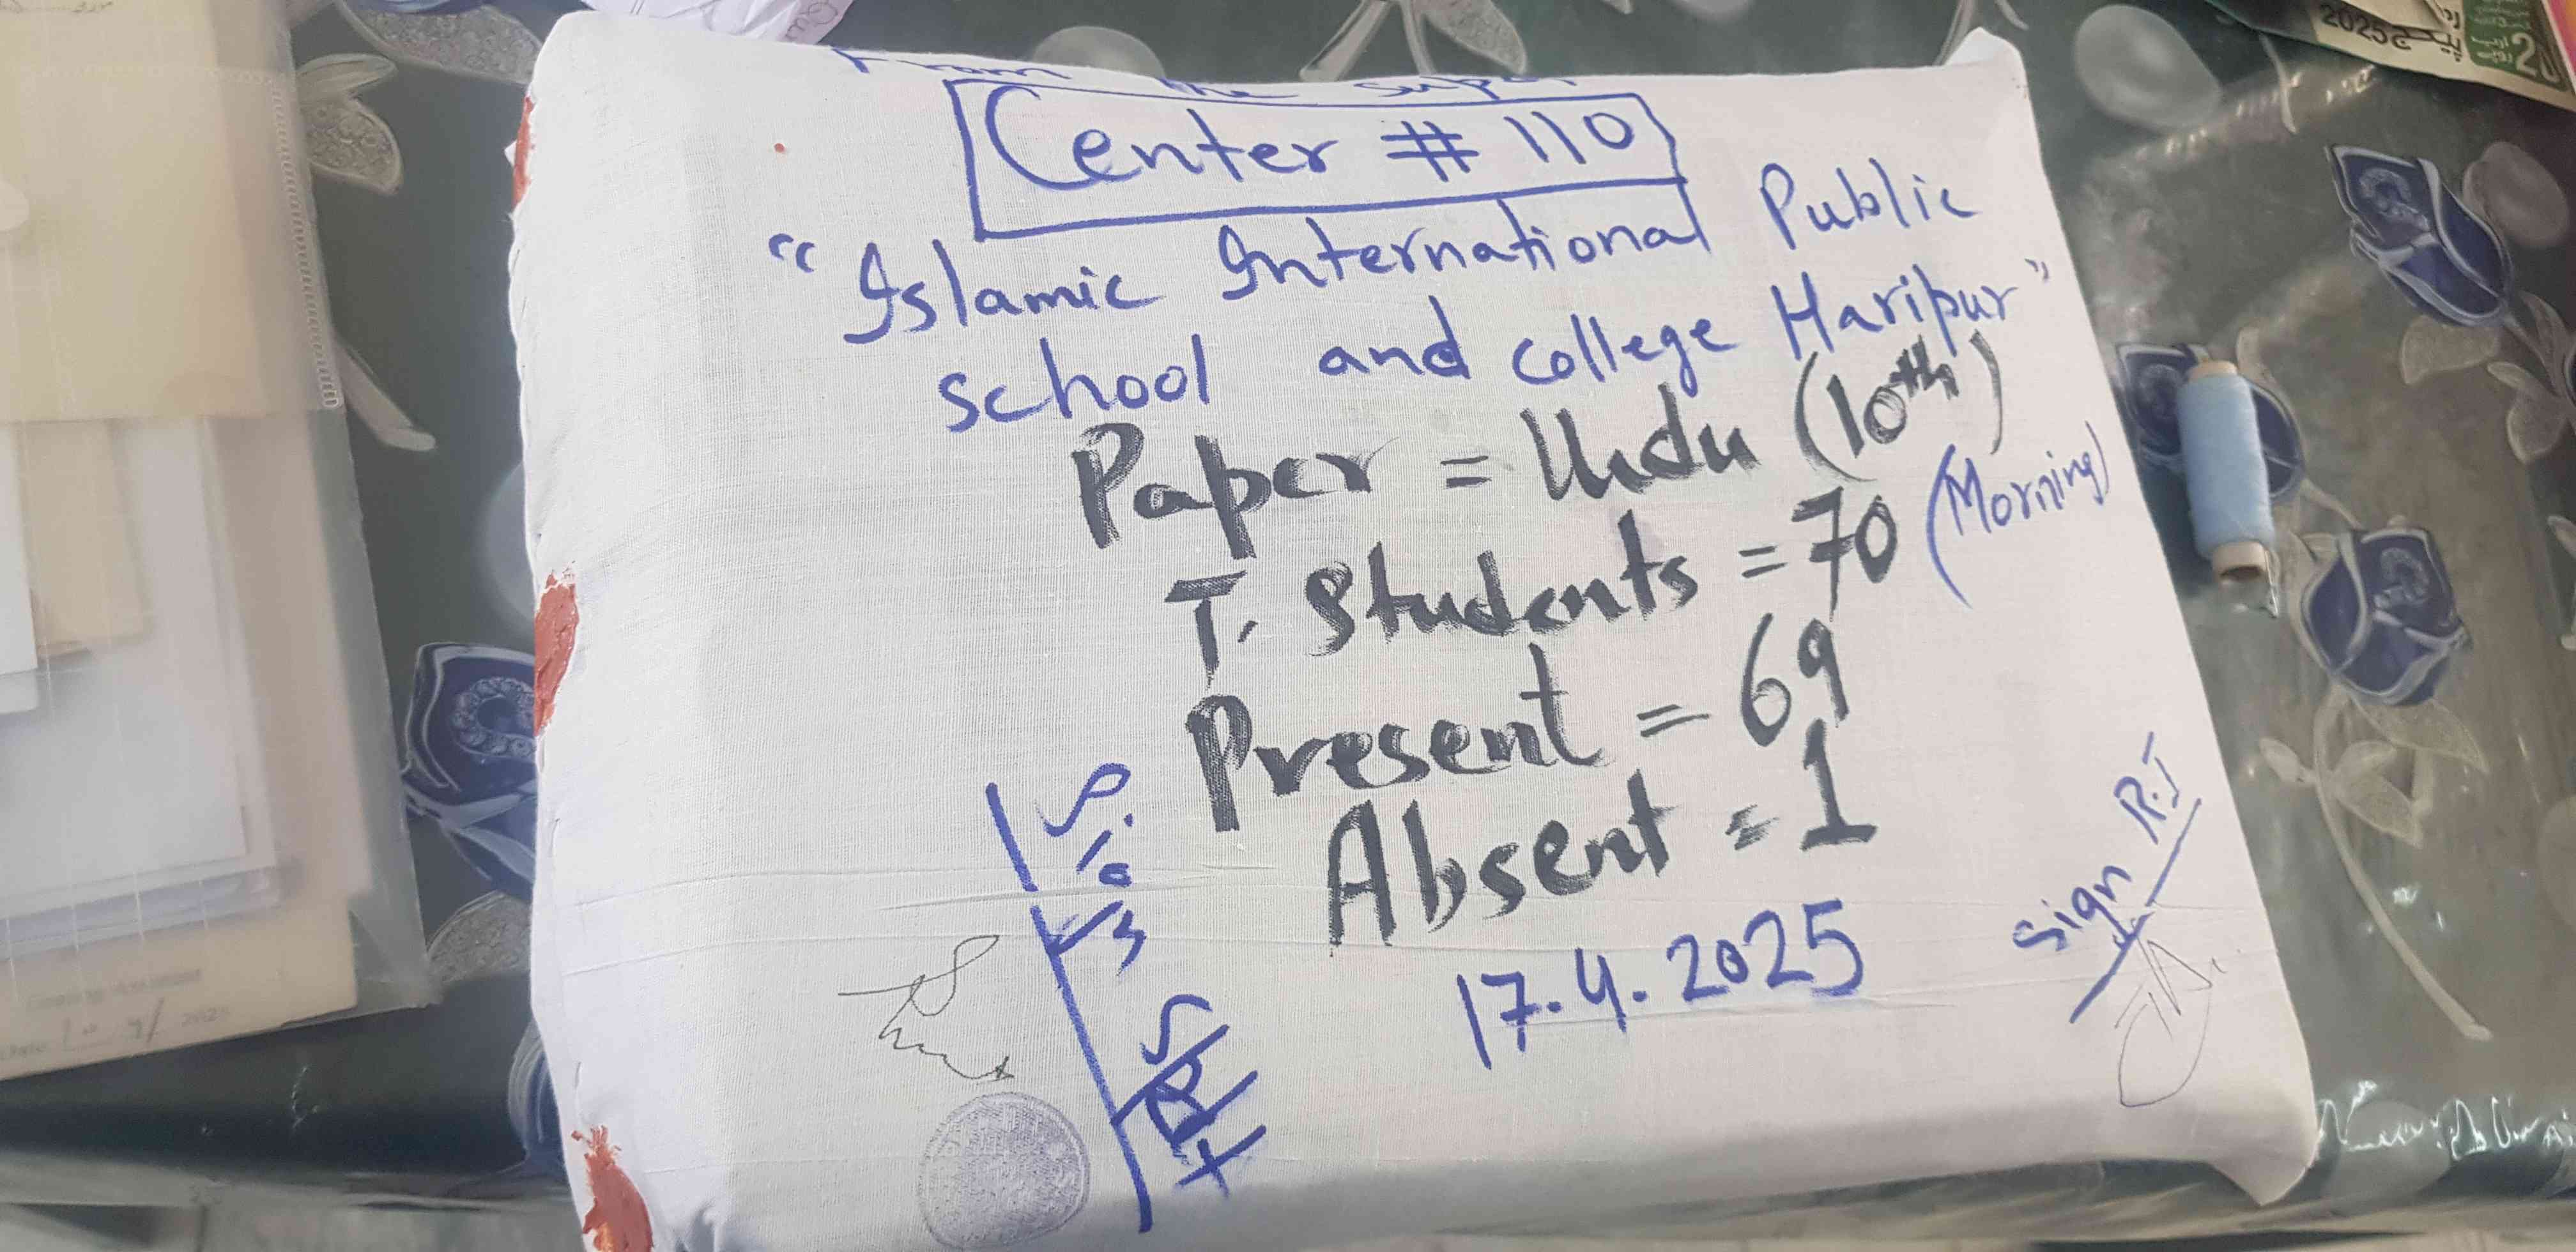 From the Super
Center # 110
"Islamic International Public
school and college Haripur"
Paper = Urdu (10th)
(Morning)
T. Students = 70
Present = 69
Absent = 1
17.4.2025
Sign R.I
Sign
Supt
2025